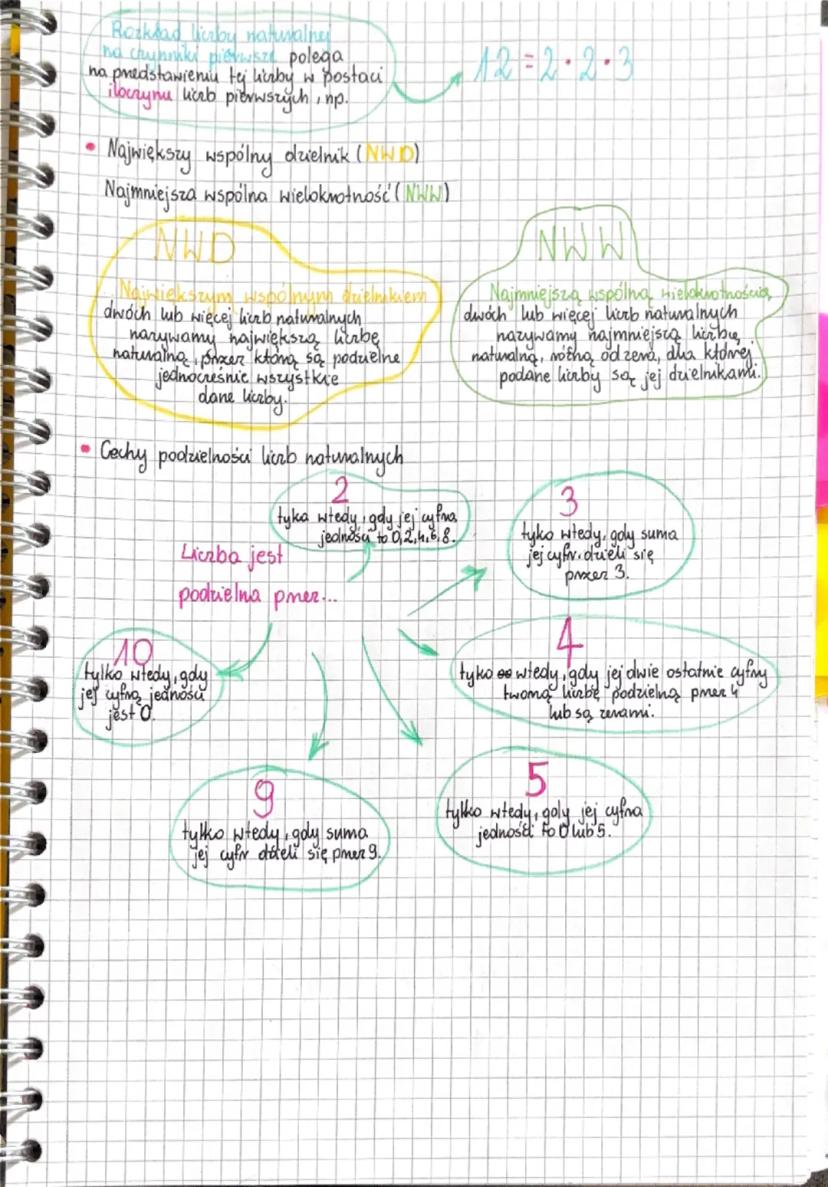 Rozkład liczby naturalnej
na czynniki pierwsze polega
na przedstawieniu tej liczby w postaci
iloczynu liczb pierwszych, np.
12 = 2 · 2 · 3
• Największy wspólny dzielnik (NWD)
Najmniejsza wspólna wielokrotność (NWW)
NWD
Największym wspólnym dzielnikiem
dwóch lub więcej liczb naturalnych
nazywamy największą liczbę
naturalną, przez którą są podzielne
jednocześnie wszystkie
dane liczby.
NWW
Najmniejszą wspólną wielokrotnością
dwóch lub więcej liczb naturalnych
nazywamy najmniejszą liczbę
naturalną, różną od zera, dla której
podane liczby są jej dzielnikami.
• Cechy podzielności liczb naturalnych
Liczba jest
podzielna przez...
2
tyka wtedy, gdy jej cyfra
jedności to 0,2,4,6,8.
3
tyko wtedy, gdy suma
jej cyfr dzieli się
przez 3.
4
tyko wtedy, gdy jej dwie ostatnie cyfry
tworzą liczbę podzielną przez 4
lub są zerami.
5
tylko wtedy, gdy jej cyfra
jedności to 0 lub 5.
9
tylko wtedy, gdy suma
jej cyfr dzieli się przez 9.
10
tylko wtedy, gdy
jej cyfrą jedności
jest 0.